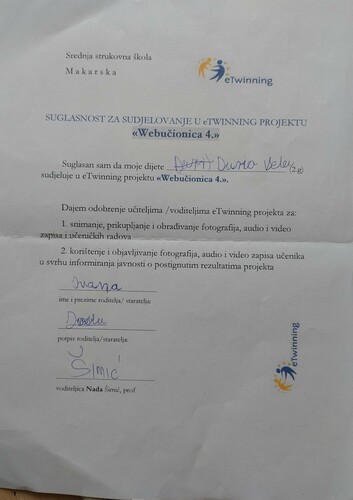 Srednja strukovna škola
Makarska
eTwinning
SUGLASNOST ZA SUDJELOVANJE U eTWINNING PROJEKTU
«Webučionica 4.»
Suglasan sam da moje dijete
sudjeluje u eTwinning projektu «Webučionica 4.».
Dajem odobrenje učiteljima /voditeljima eTwinning projekta za:
1. snimanje, prikupljanje i obrađivanje fotografija, audio i video
zapisa i učeničkih radova
2. korištenje i objavljivanje fotografija, audio i video zapisa učenika
u svrhu informiranja javnosti o postignutim rezultatima projekta
ime i prezime roditelja/ staratelja
potpis roditelja/staratelja
Šimić
voditeljica Nada Šimić, prof
eTwinning